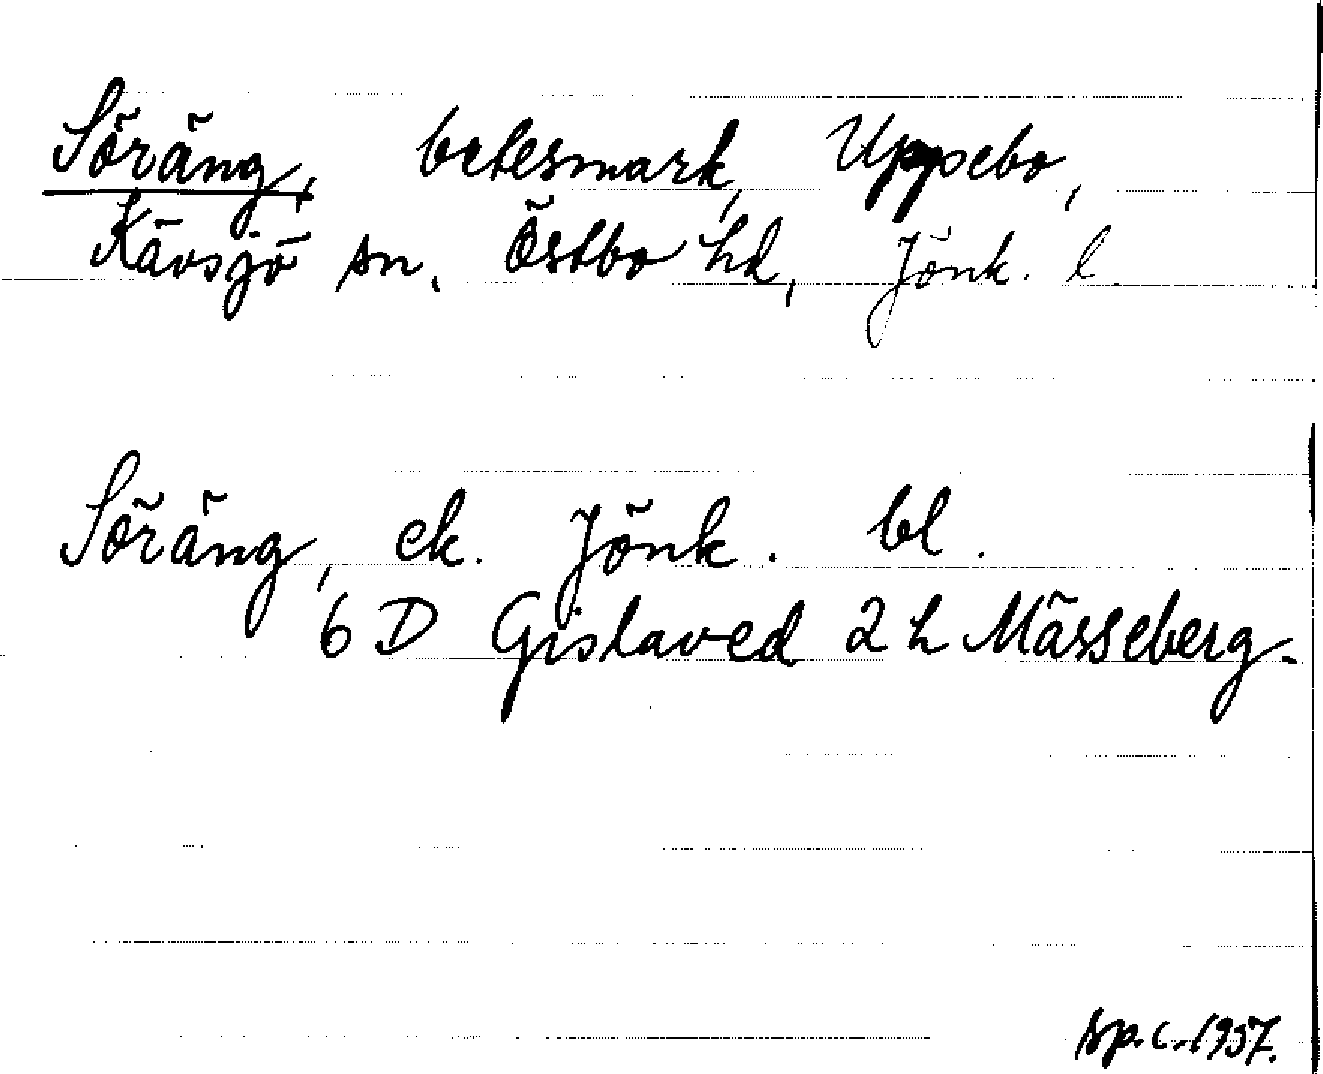 Söräng, betesmark, Uppebo,
Kävsjö sn, Östbo hd, Jönk. l.
Söräng, ek. Jönk. bl.
6 D Gislaved 2 h Mässeberg.
sp. c. 1957.